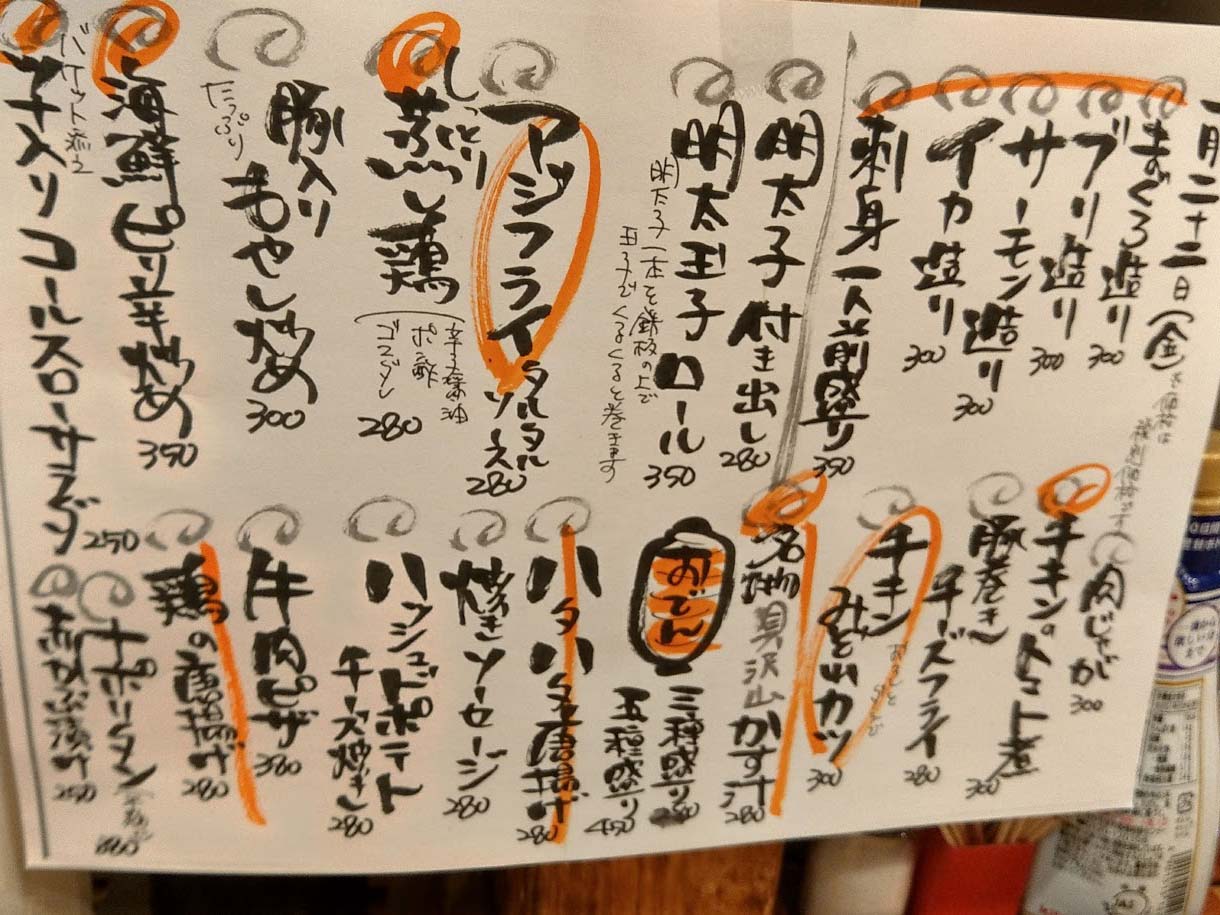 一月二十二日(金)
まぐろ造り
ブリ造り 300
サーモン造り 300
イカ造り 300
刺身一人前盛り 350
明太子付き出し 280
明太玉子ロール 350
明太子一本を鉄板の上で
玉子でくるくると巻きます
アジフライ タルタルソース 280
しっとり
蒸し鶏 280
辛子醤油
ポン酢
ゴマダレ
豚入り
たっぷり
もやし炒め 300
海鮮ピリ辛炒め 350
バケット添え
入りコールスローサラダ 250
肉じゃが 300
チキンのトマト煮 300
豚巻き
チーズフライ 280
チキン
みぞれカツ 300
名物具沢山かす汁 280
おでん
三種盛り 280
五種盛り 450
ハタハタ唐揚げ 280
焼きソーセージ 280
ハッシュドポテト
チーズ焼き 280
牛肉ピザ 380
鶏の唐揚げ 280
ナポリタン
赤かぶ漬け 250